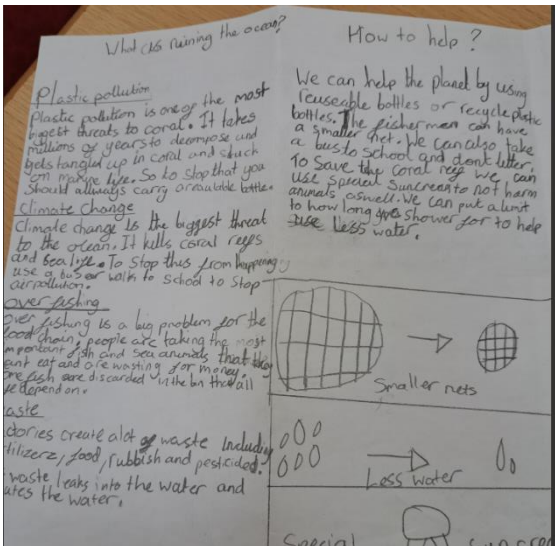 What is ruining the ocean?
Plastic pollution
Plastic pollution is one of the most
biggest threats to coral. It takes
millions of years to decompose and
gets tangled up in coral and stuck
on marine life. So to stop that you
should allways carry a reusable bottle.
Climate Change
Climate change is the biggest threat
to the ocean. It kills coral reefs
and sea life. To stop this from happening
use a bus or walk to school to stop
air pollution.
over fishing
over fishing is a big problem for the
food chain, people are taking the most
important fish and sea animals that they
cant eat and are wasting for money.
fish are discarded in the bin that all
depend on.
aste
create alot of waste including
tilizerz, food, rubbish and pesticided.
waste leaks into the water and
ates the water.
How to help?
We can help the planet by using
reuseable bottles or recycle plastic
bottles. The fisher men can have
a smaller net. We can also take
a bus to school and dont litter.
To save the coral reef we can
use special suncream to not harm
animals aswell. We can put a limit
to how long you shower for to help
use less water.
Smaller nets
Less water
Special